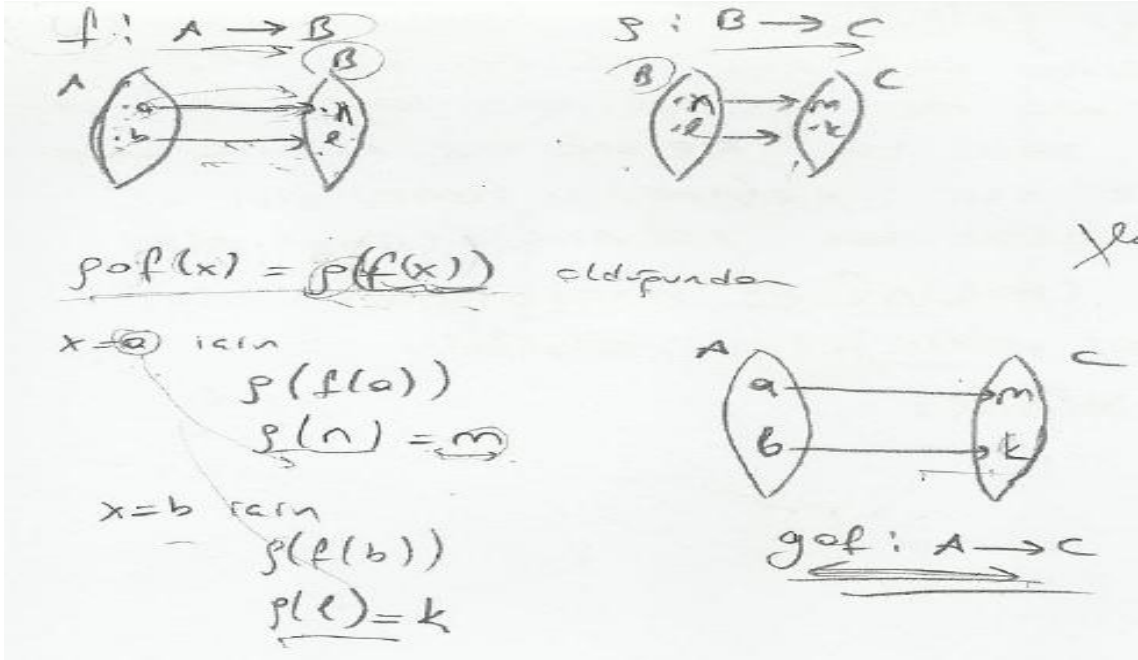 f : A → B
g : B → C
A B
·a → ·n
·b → ·l
B C
·n → m
·l → ·k
gof(x) = g(f(x)) olduğundan
x=a için
g(f(a))
g(n) = m
x=b için
g(f(b))
g(l) = k
A C
a → m
b → k
gof : A → C